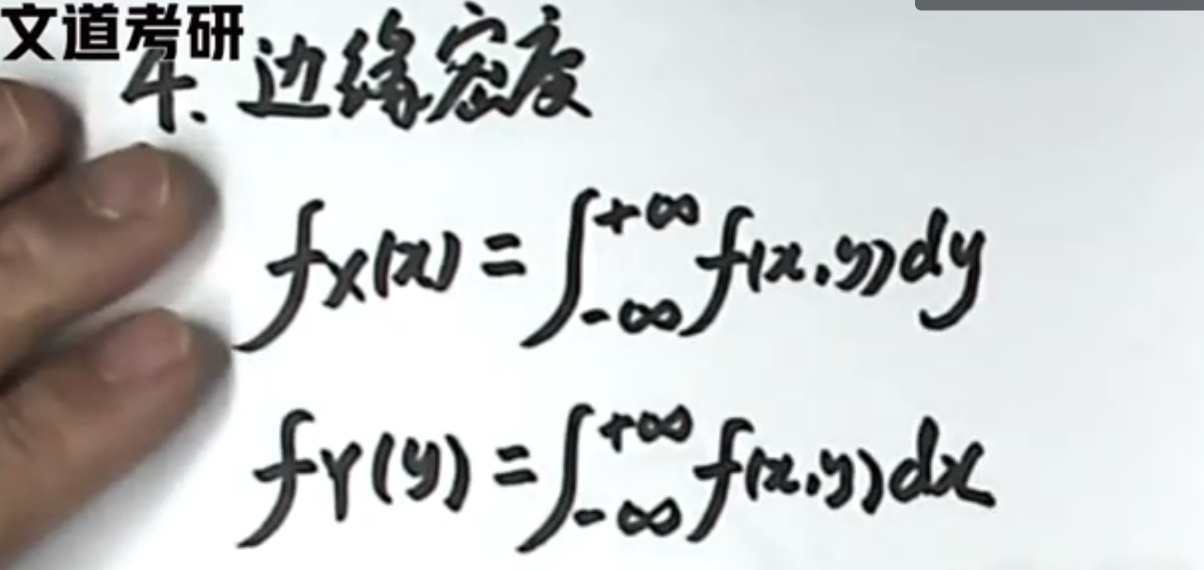 文道考研
4. 边缘密度
fX(x) = ∫_{-∞}^{+∞} f(x,y)dy
fY(y) = ∫_{-∞}^{+∞} f(x,y)dx